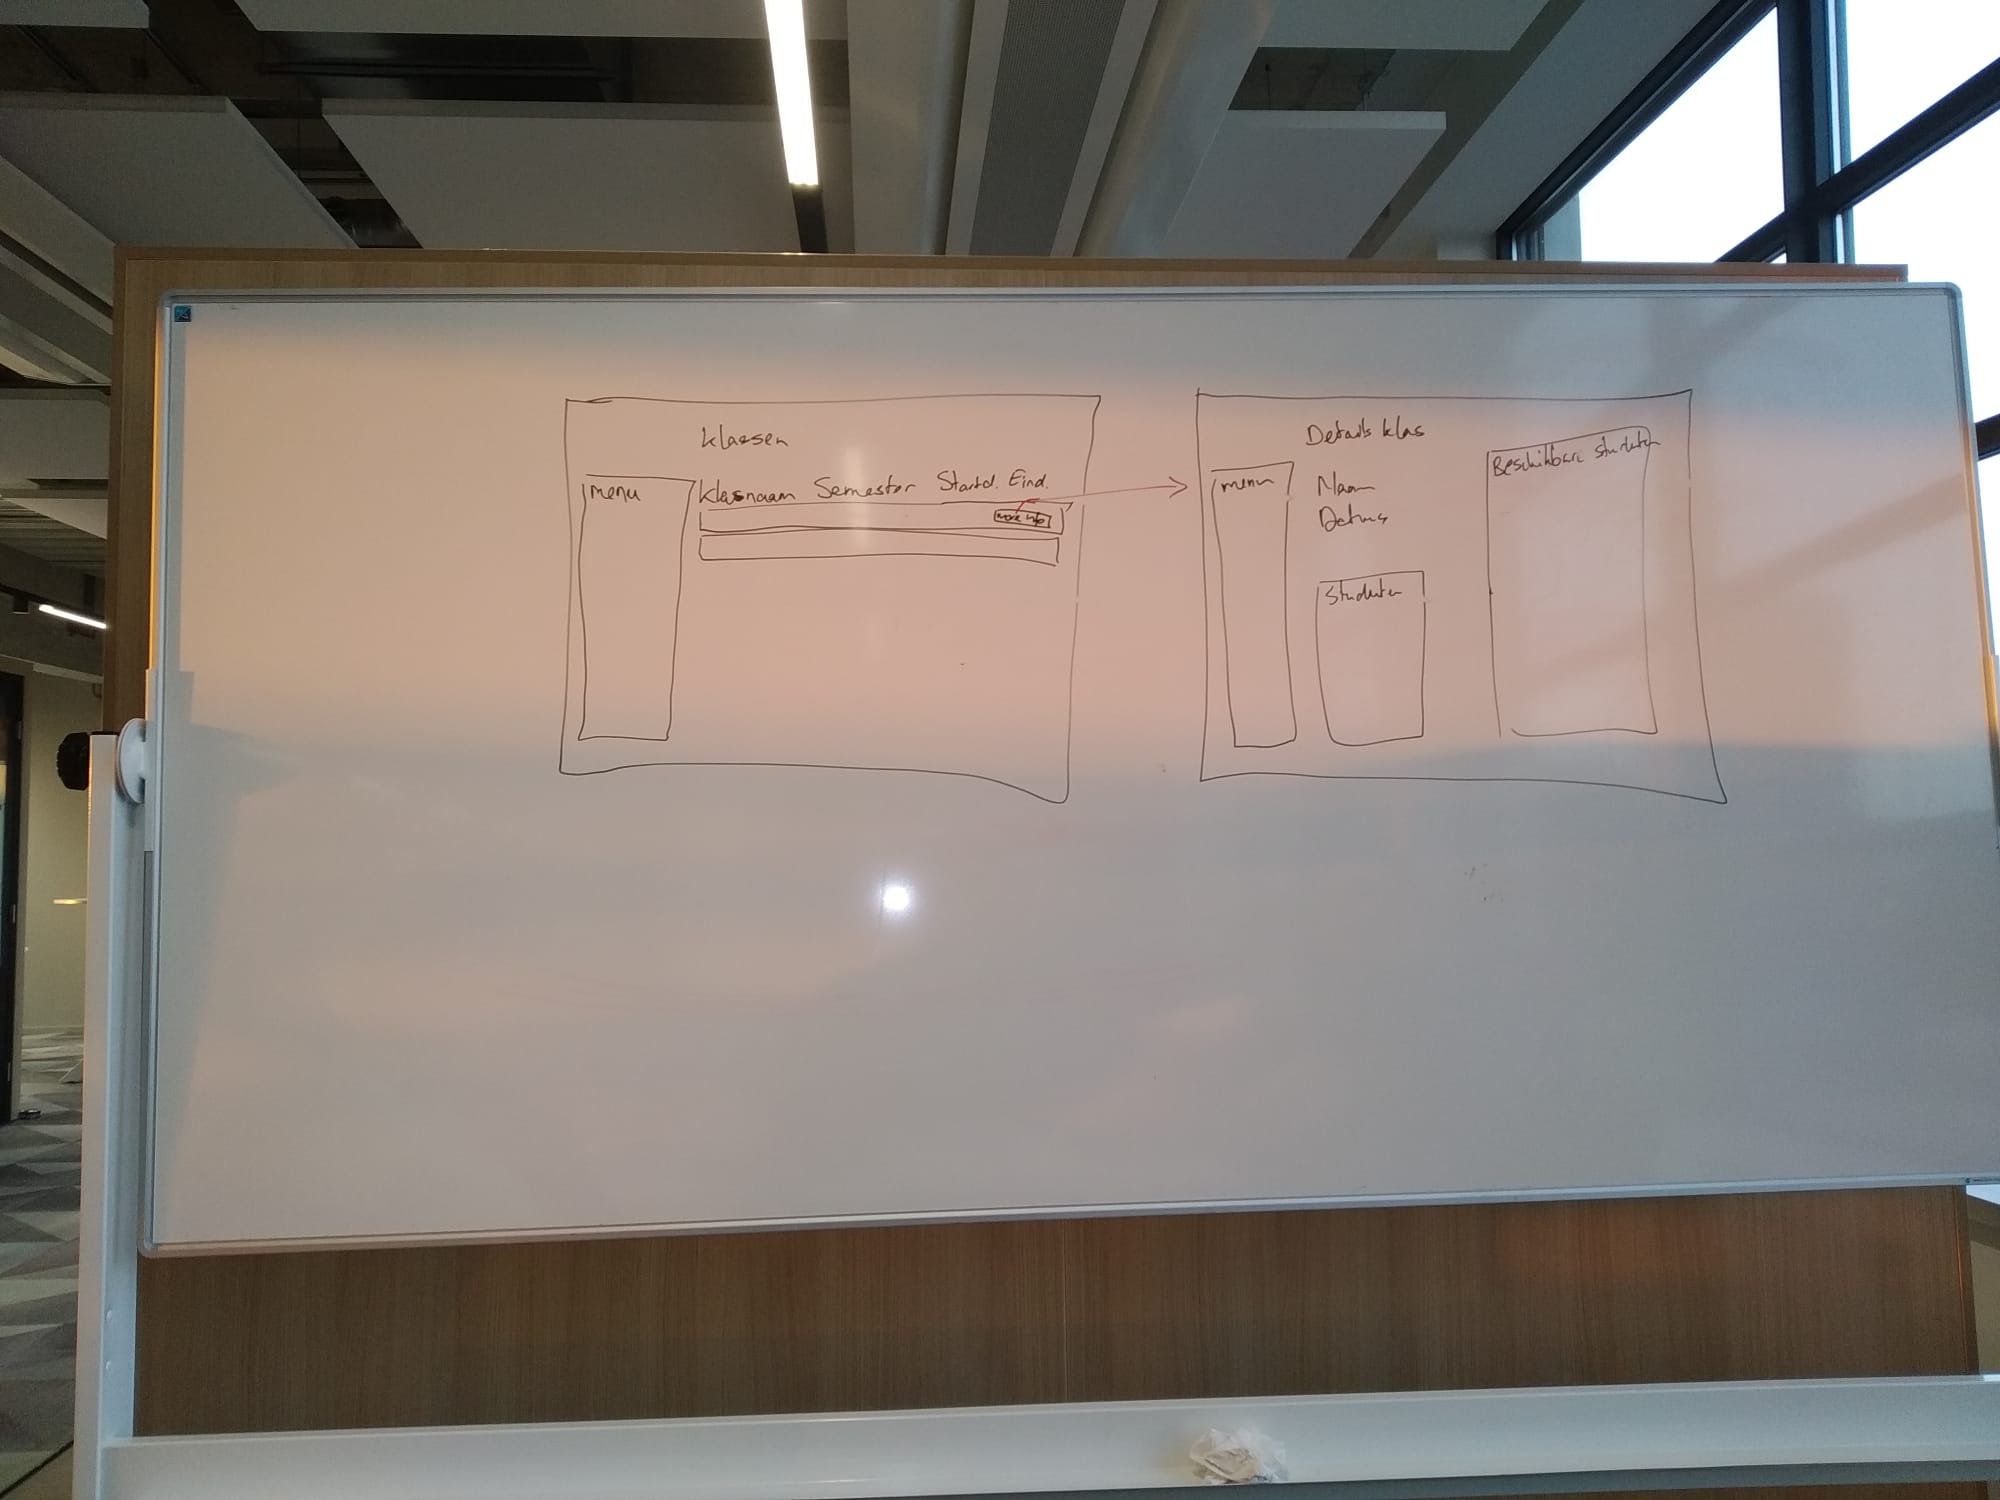 Klassen
menu
Klasnaam Semester Startd. Eind.
more info
Details klas
menu
Naam
Datums
Studenten
Beschikbare studenten